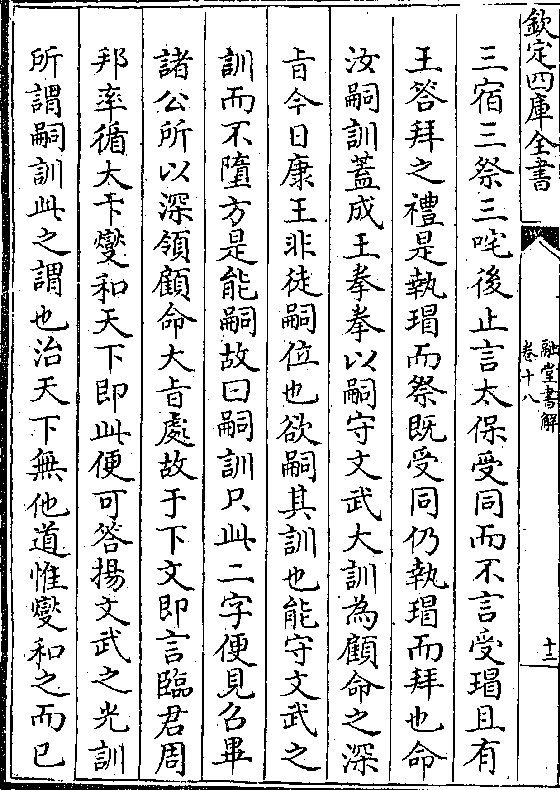 欽定四庫全書
融堂書解
卷十八
十三
三宿三祭三咤後止言太保受同而不言受瑁且有
王答拜之禮是執瑁而祭既受同仍執瑁而拜也命
汝嗣訓蓋成王拳拳以嗣守文武大訓為顧命之深
㫖今日康王非徒嗣位也欲嗣其訓也能守文武之
訓而不墮方是能嗣故曰嗣訓只此二字便見召畢
諸公所以深領顧命大㫖處故于下文即言臨君周
邦率循大卞燮和天下即此便可答揚文武之光訓
所謂嗣訓此之謂也治天下無他道惟燮和之而已